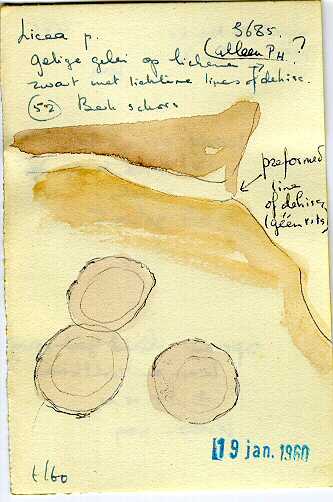 Licea p.
3685.
(alleen PH ?
gelige gelei op lichenen
zwart met lichtere lines of dehisc.
(52) Berk schors
preformed
line
of dehisc.
(géén rits)
19 jan. 1960
t/60